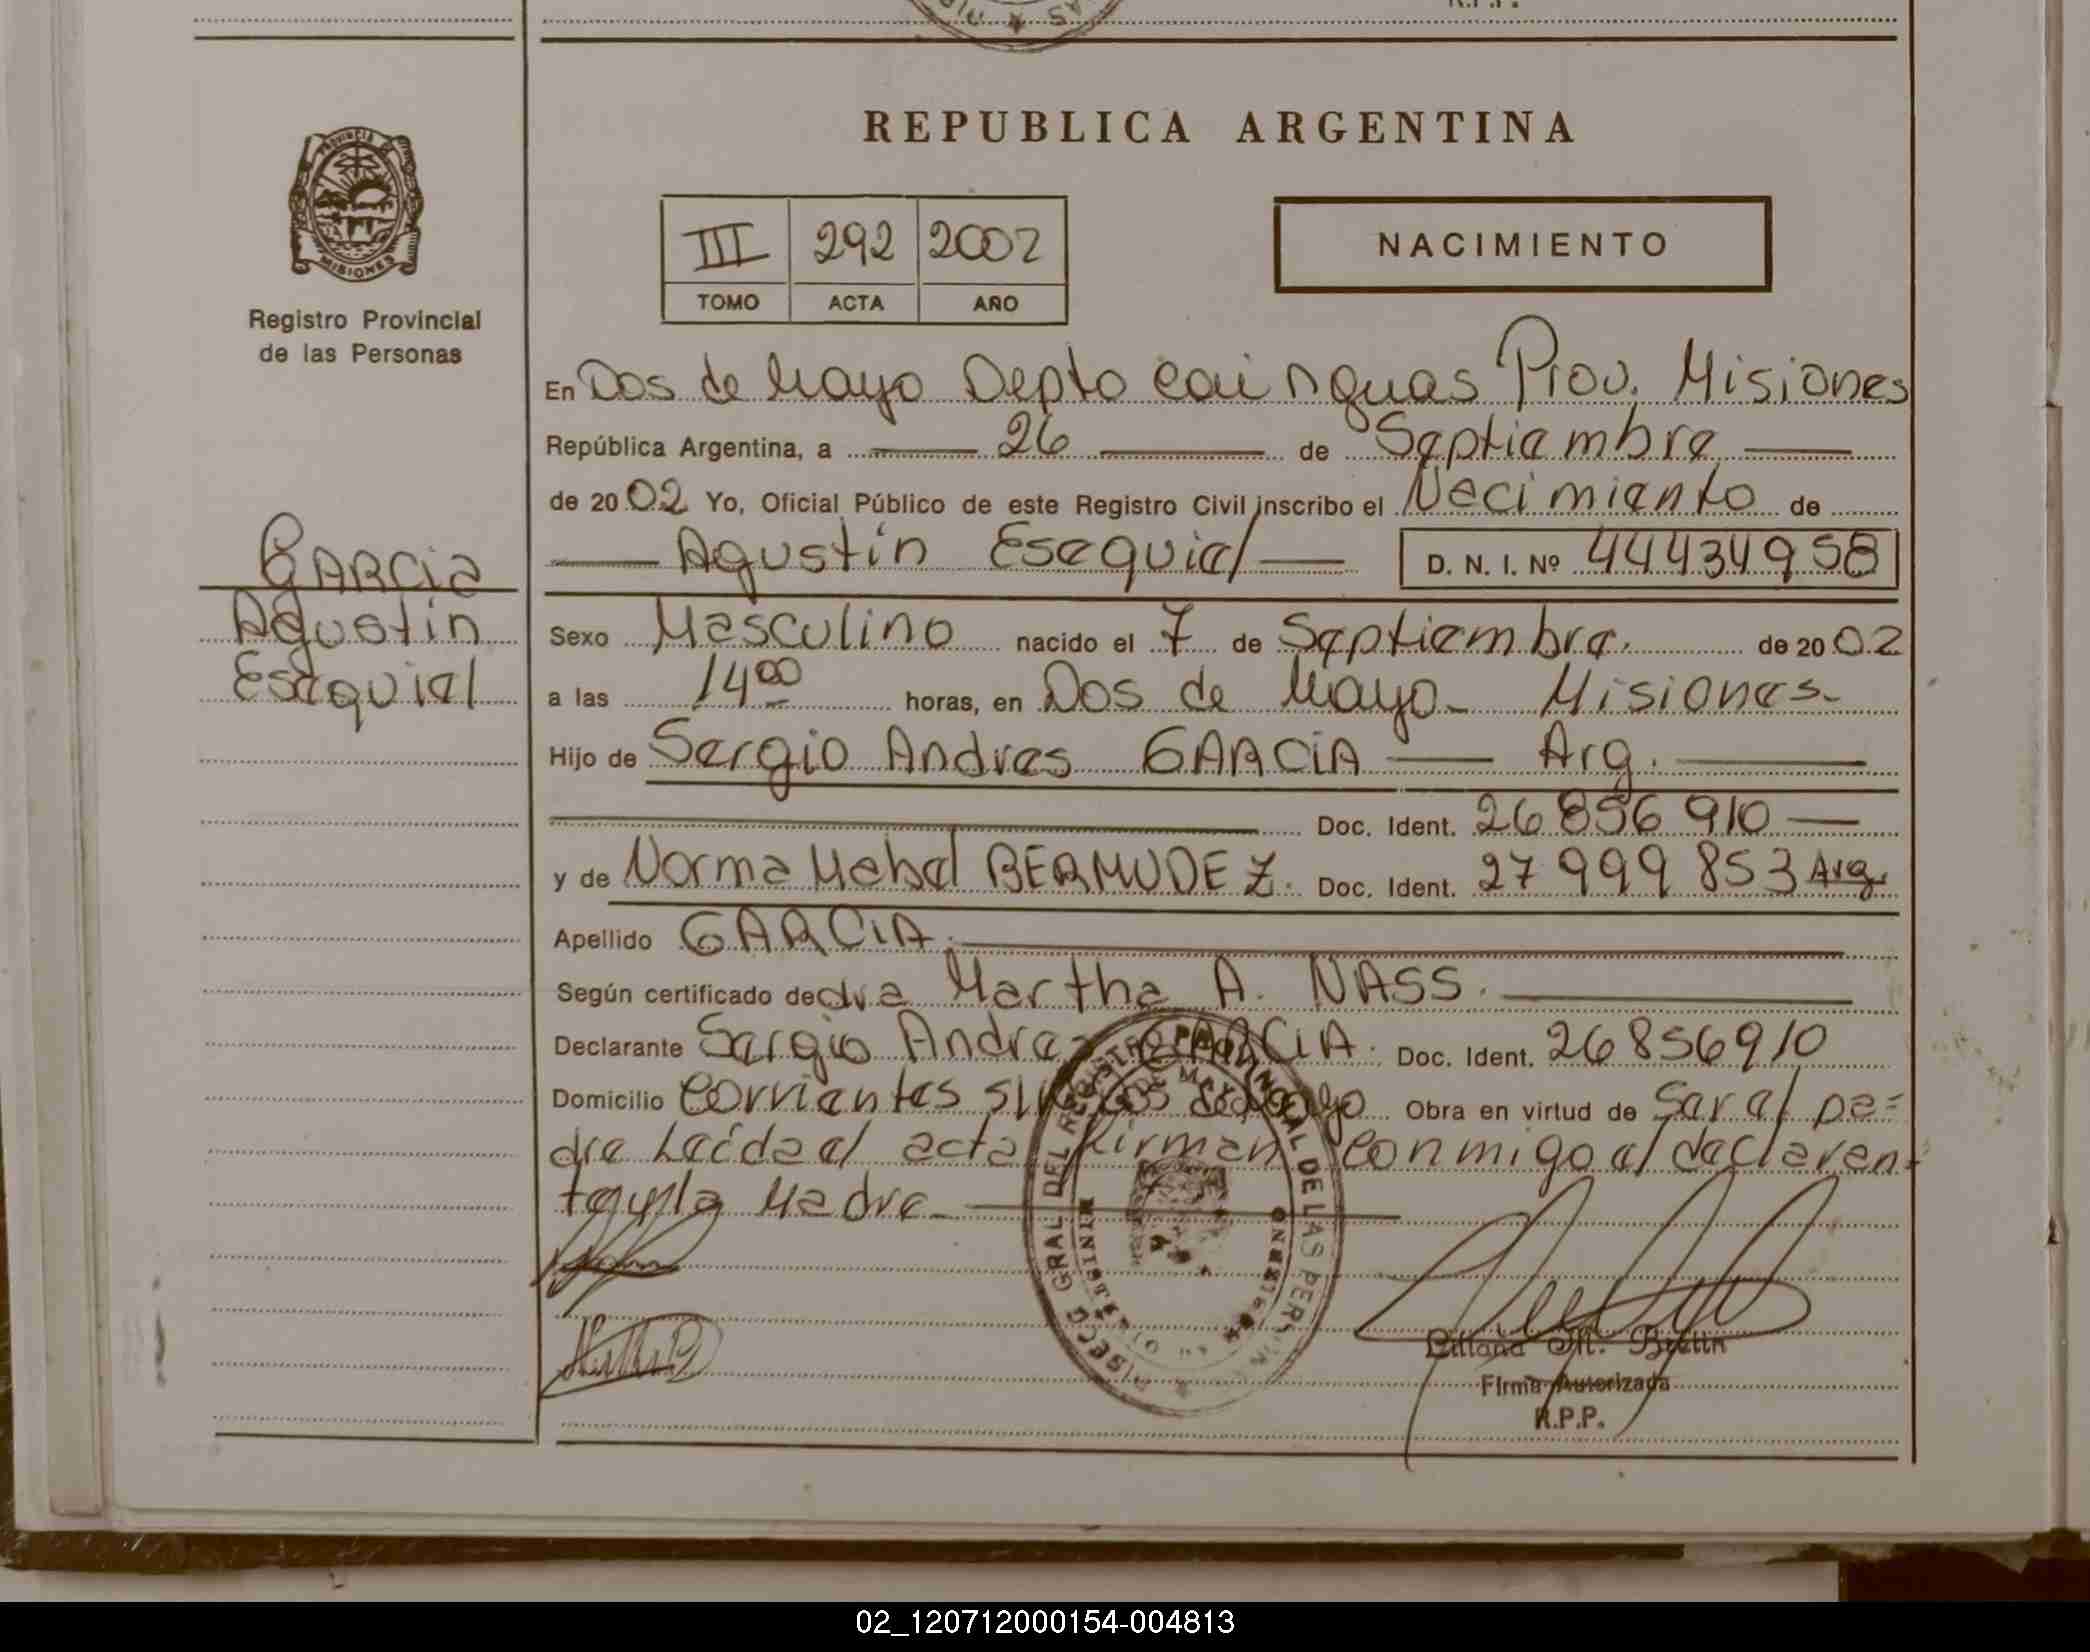 REPUBLICA ARGENTINA
PROVINCIA DE
MISIONES
Registro Provincial
de las Personas
III 292 2002
TOMO ACTA AÑO
NACIMIENTO
En Dos de Mayo Depto Cainguas Prov. Misiones
República Argentina, a 26 de Septiembre
de 2002 Yo, Oficial Público de este Registro Civil inscribo el Nacimiento de
Agustín Esequiel D. N. I. Nº 44434958
GARCia
Agustín
Esequiel
Sexo Masculino nacido el 7 de Septiembre. de 2002
a las 14 00 horas, en Dos de Mayo - Misiones-
Hijo de Sergio Andres GARCiA Arg.
Doc. Ident. 26856910
y de Norma Mabel BERMUDEZ. Doc. Ident. 27999853 Arg.
Apellido GARCiA.
Según certificado de dra Martha A. NASS.
Declarante Sergio Andres GARCiA. Doc. Ident. 26856910
Domicilio Corrientes s/n Dos de Mayo Obra en virtud de Ser el pa=
dre Leída el acta firman conmigo el declaran-
te y la Madre.
GRAL DEL REGISTRO PROVINCIAL DE LAS PER
Liliana M.
Firma Autorizada
R.P.P.
02_120712000154-004813